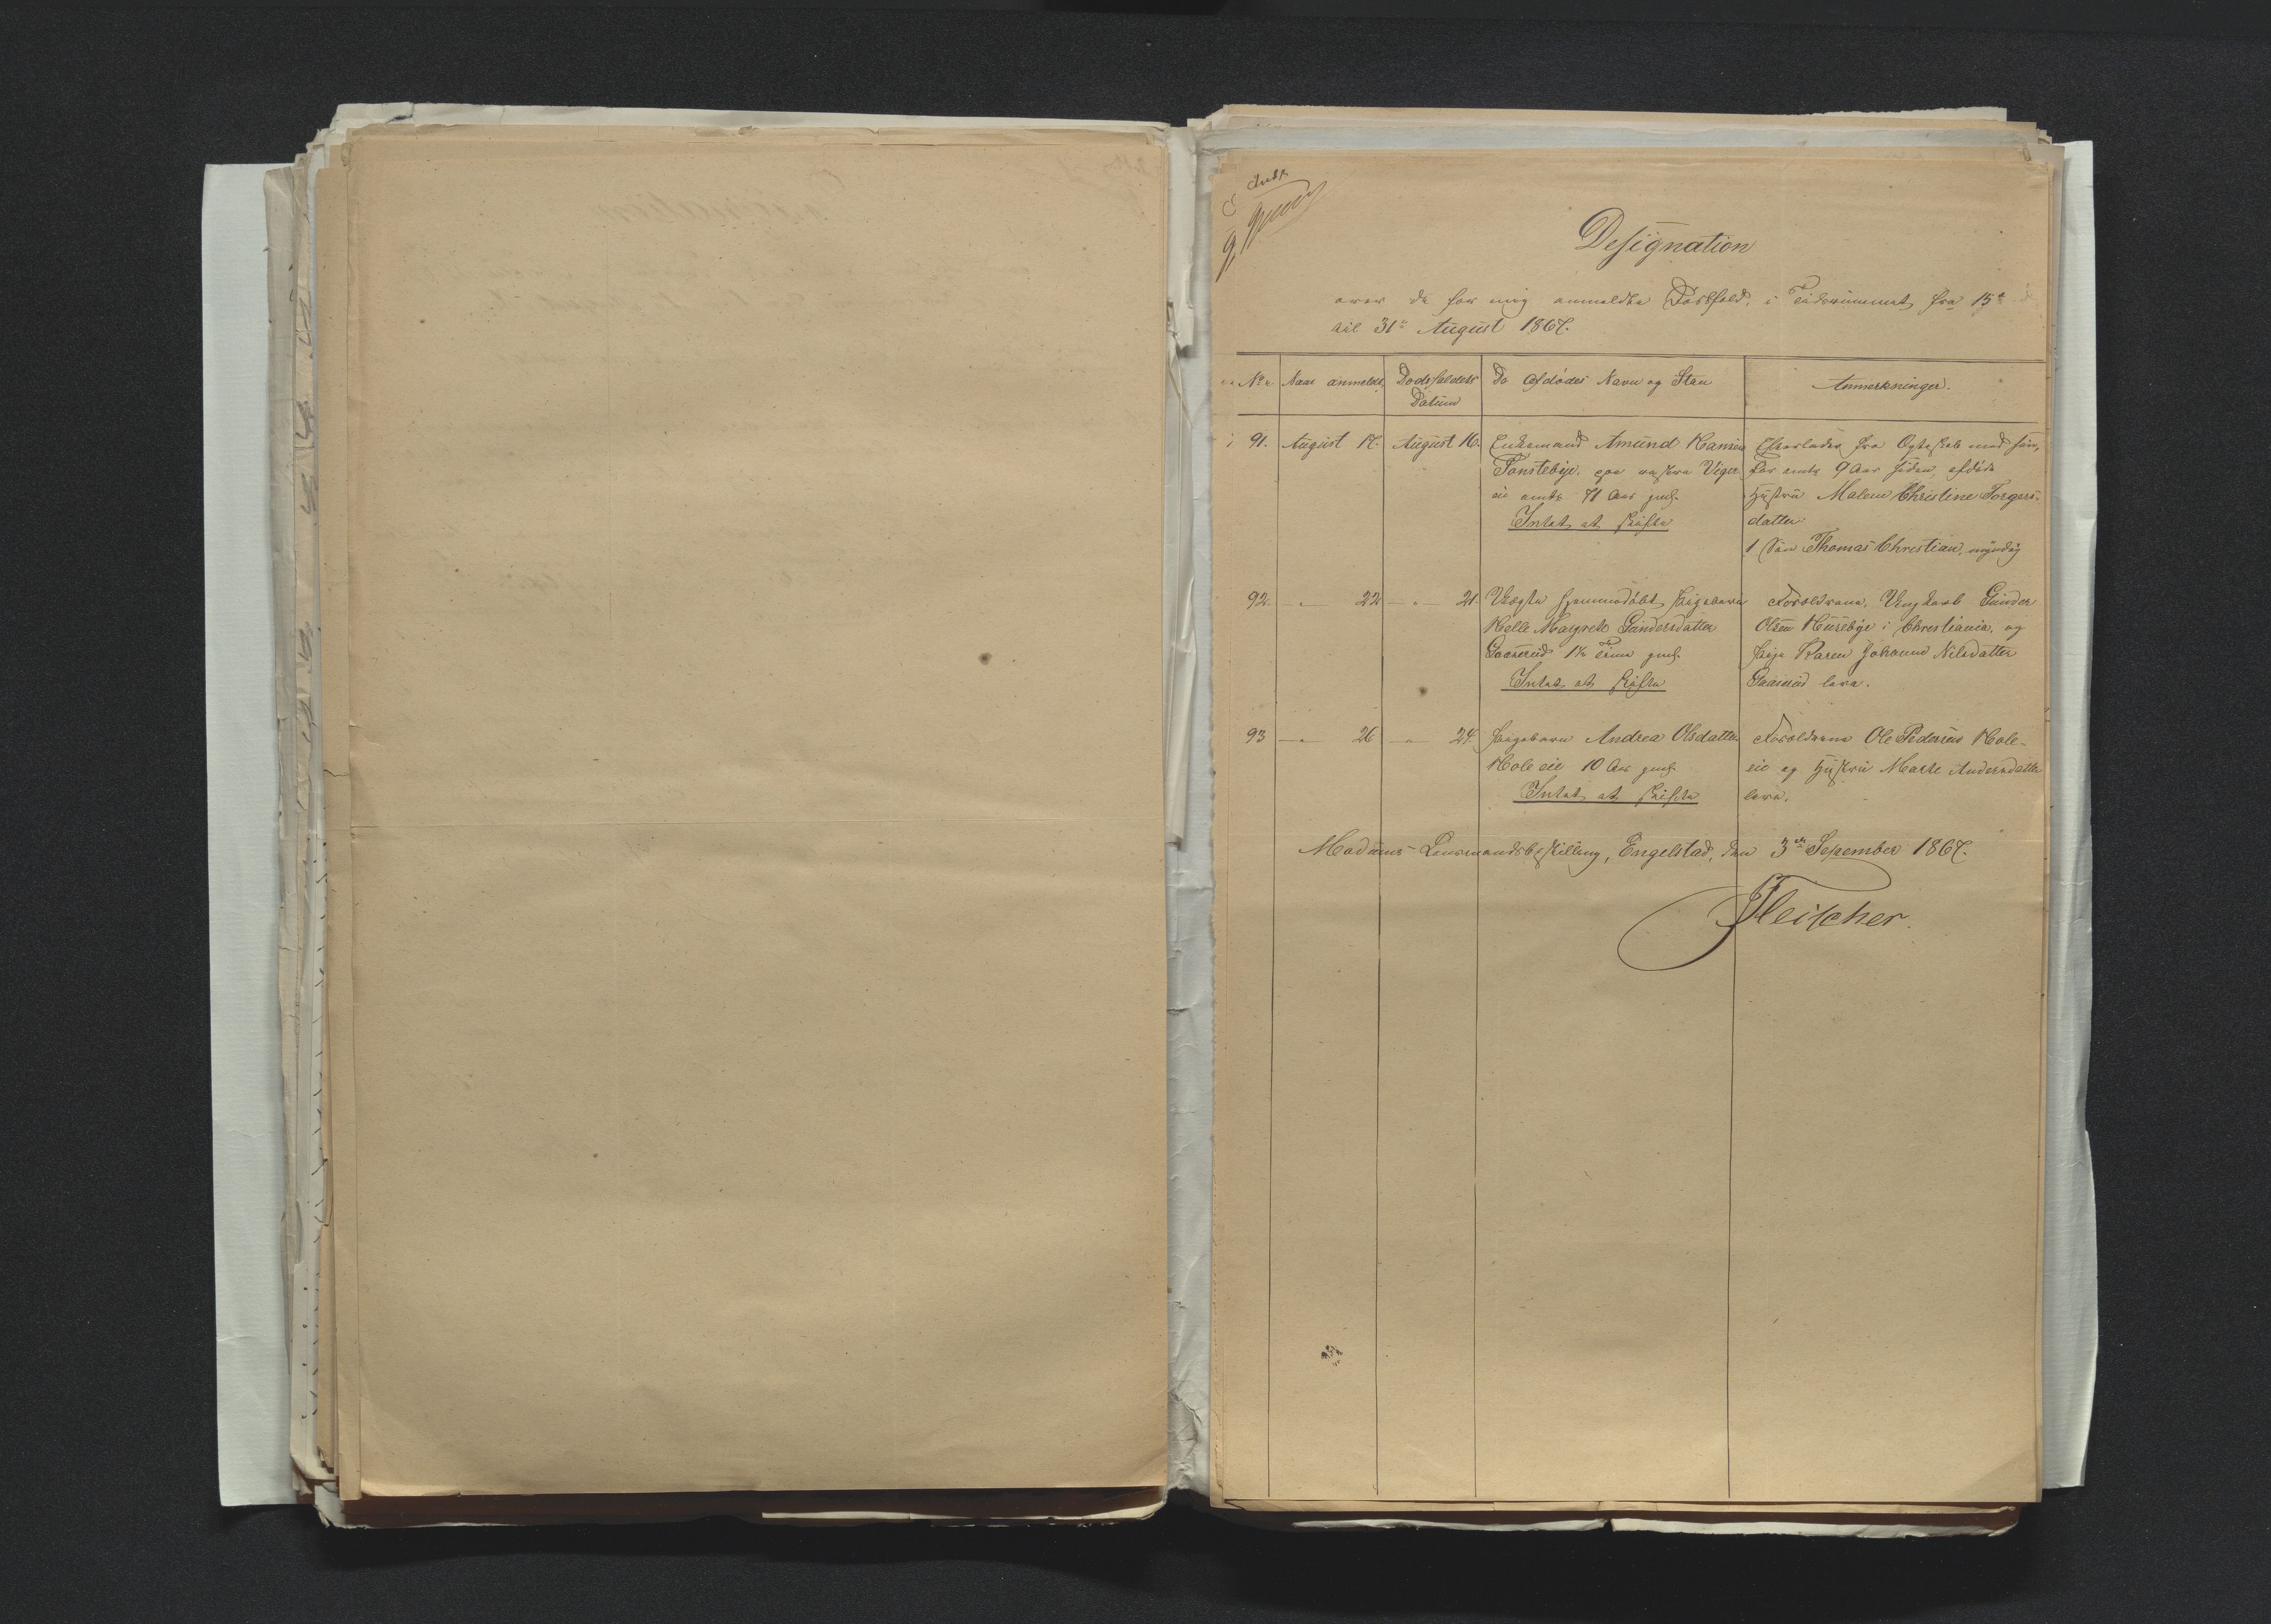 Designation
over de for mig anmeldte Dødsfald, i Tidsrummet fra 15de
til 31te August 1867.
No. Naar anmeldt Dødsfaldets Datum De Afdødes Navn og Stan Anmerkninger.
91. August 17. August 16. Enkemand Amund Hansen
Tonstebye, paa vestre Viger
eie omtr 71 Aar gml.
Intet at skifte
Efterlader fra Egteskab med sin,
for omtr 9 Aar siden, afdøde
Hustru Malene Christine Torgers-
datter
1 Søn Thomas Christian, myndig
92. — " — 22 — " — 21. Uægte hjemmedøbt Pigebarn
Helle Margrete Gundersdatter
Gaaserud 1½ Time gml.
Intet at skifte
Forældrene, Ungkarl Gunder
Olsen Husebye i Christiania, og
Pige Karen Johanne Nilsdatter
Gaaserud leve.
93 — " — 26 — " — 24 Pigebarn Andrea Olsdatter
Hole eie 10 Aar gml.
Intet at skifte
Forældrene Ole Pedersen Hole-
eie og Hustru Marte Andersdatter
leve.
Modums Lensmandsbestilling, Engelstad, den 3die September 1867.
Fleischer.